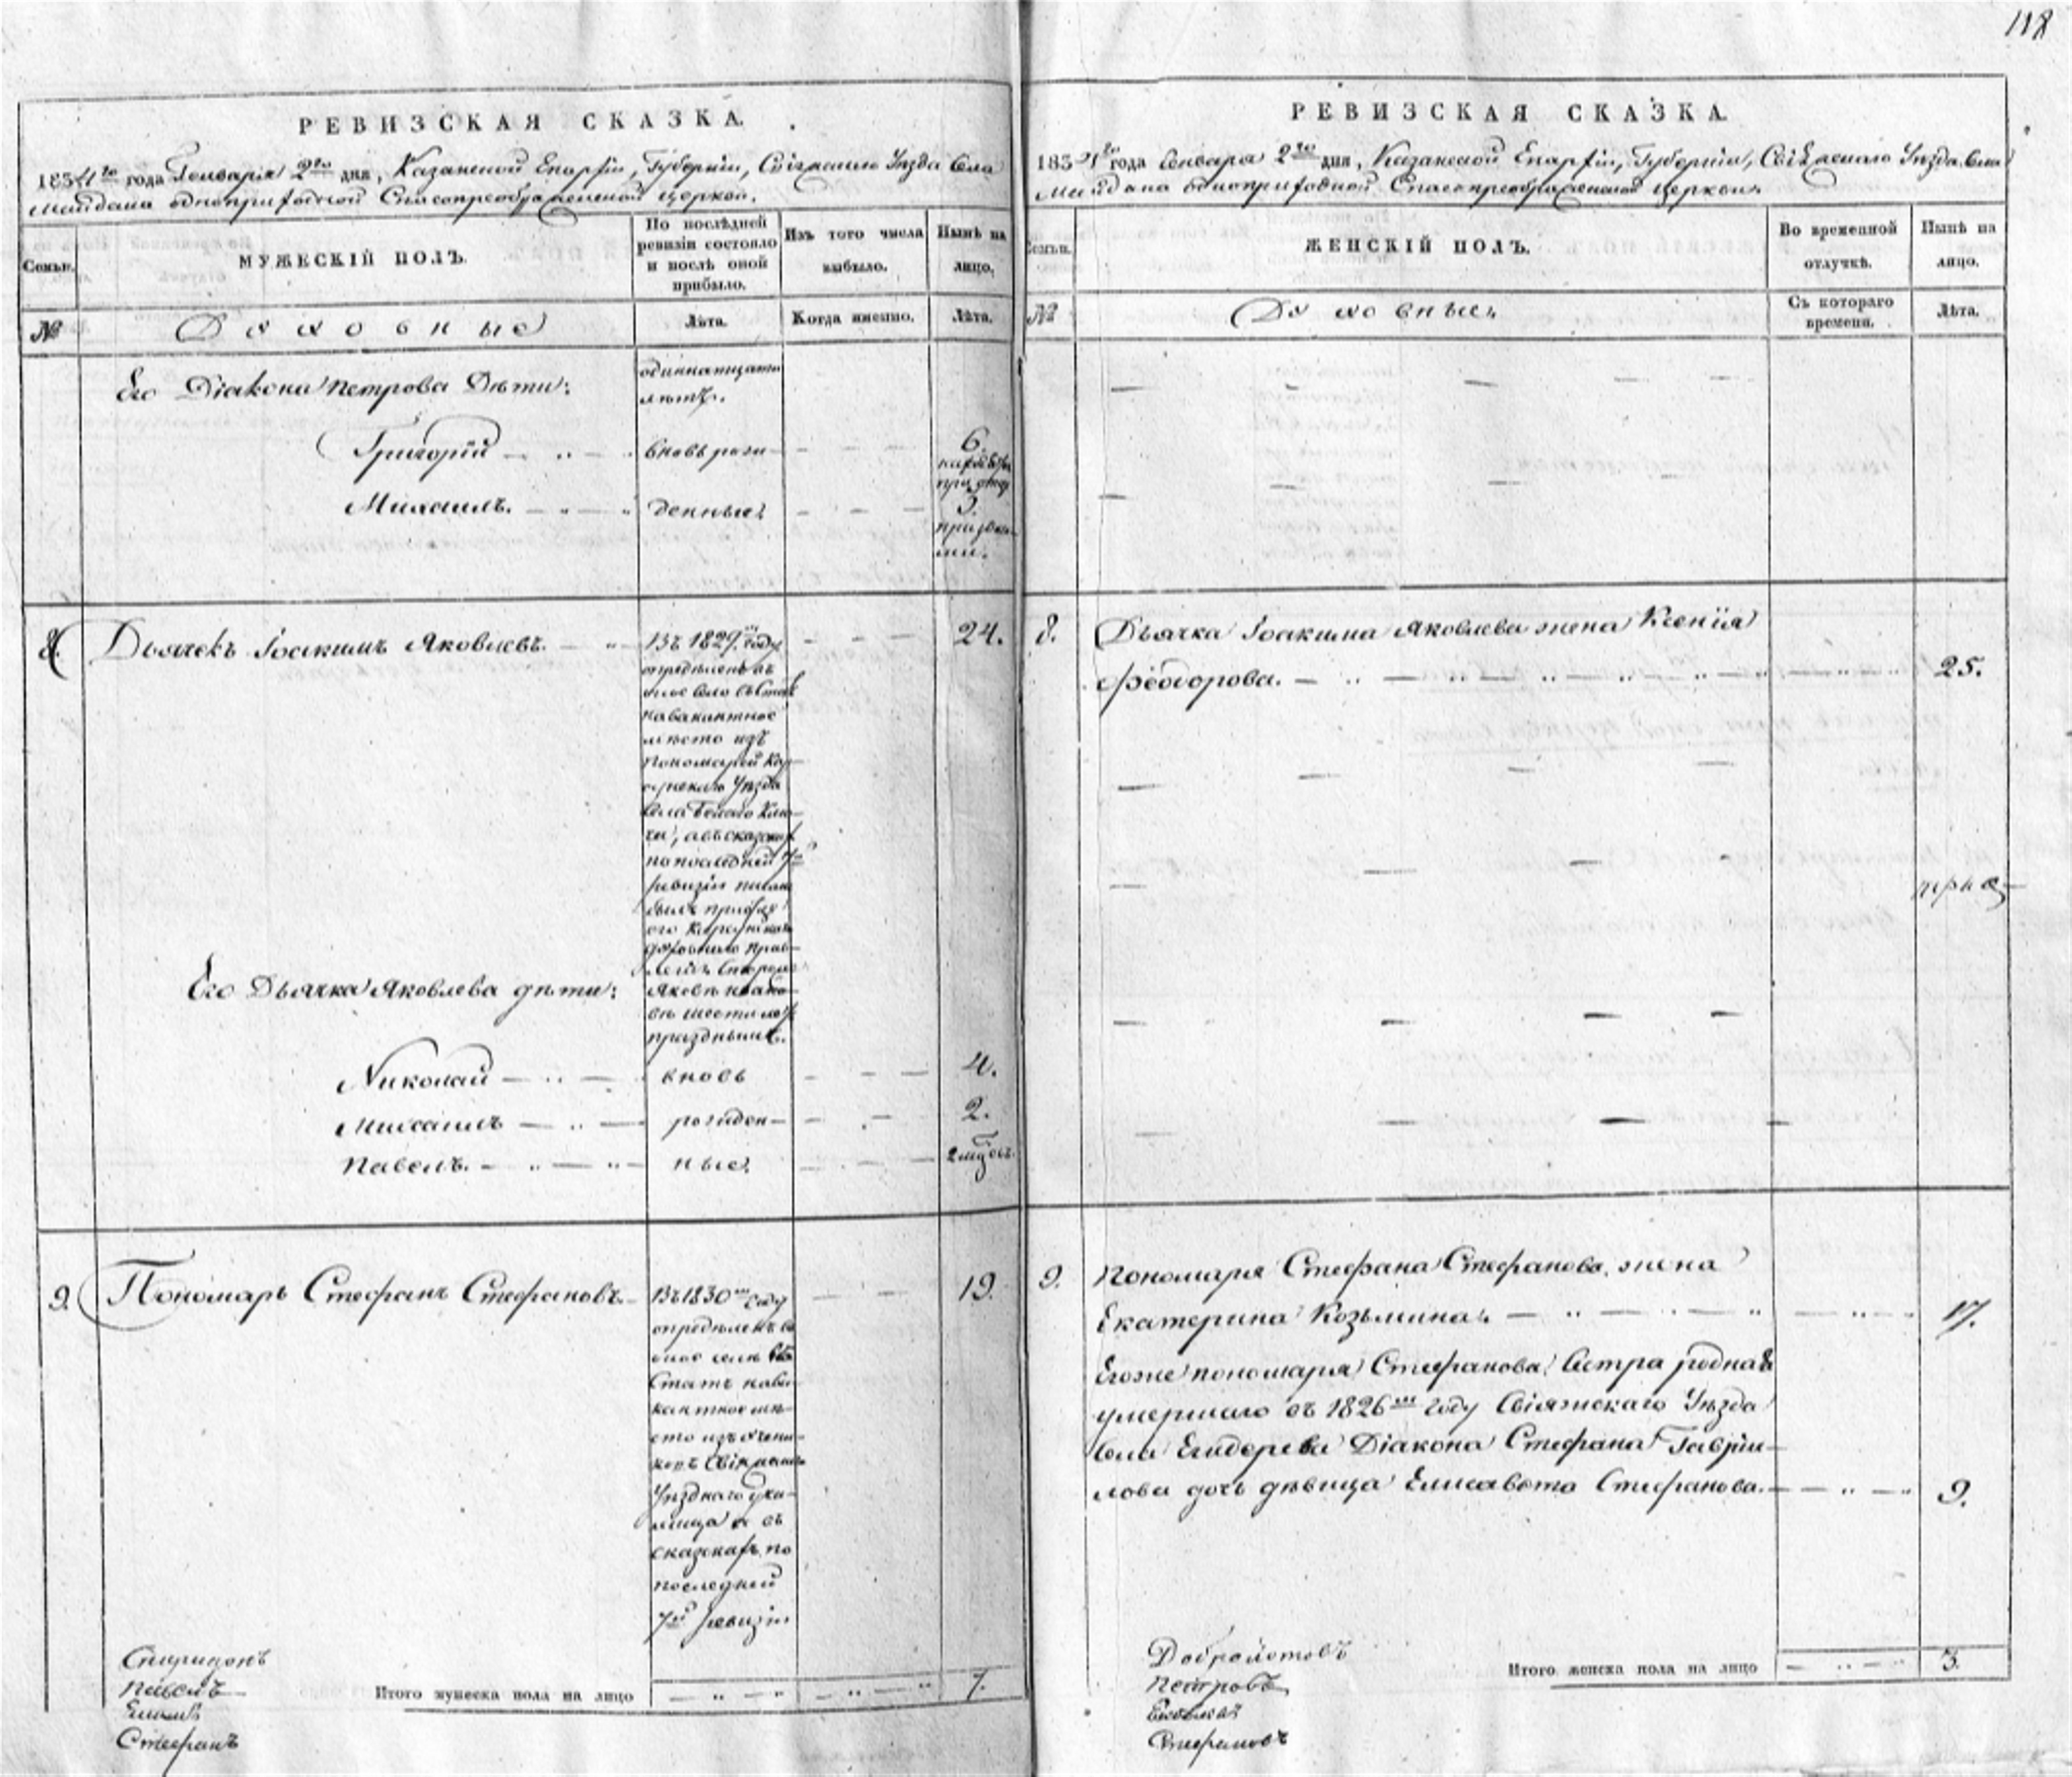 118
РЕВИЗСКАЯ СКАЗКА.
1834го года Генваря 2го дня, Казанской Епархіи, Губерніи, Свіяжскаго Уѣзда Села
Майдана одноприходной Спасопреображенской церкви.
Семьи.
МУЖЕСКІЙ ПОЛЪ.
По послѣдней
ревизіи состояло
и послѣ оной
прибыло.
Изъ того числа
выбыло.
Нынѣ на
лицо.
№
Духовные
Лѣта.
Когда именно.
Лѣта.
Его Діакона Петрова Дѣти:
одиннатцати
лѣтъ.
Григорій
вновь рож-
6.
Михаилъ.
денные.
3.
8.
Дьячекъ Іоакимъ Яковлевъ.
Въ 1829м году
опредѣленъ въ
оное село въ Штатъ
на вакантное
мѣсто изъ
Пономарей
Уѣзда
села Белаго Клю-
ча, а въ сказкахъ
по последней 7й
ревизіи писанъ
былъ при
Его Дьячка Яковлева дѣти:
шести лѣтъ
празднымъ.
24.
Николай
вновь
4.
Михаилъ
рожден-
2.
Павелъ.
ные.
9.
Пономарь Стефанъ Стефановъ.
Въ 1830м году
опредѣленъ въ
оное село въ
Статъ на ва-
кантное мѣ-
сто изъ учени-
ковъ Свіяжскаго
Уѣзднаго учи-
лища а въ
сказкахъ по
последней
7й ревизіи
19.
Спиридонъ
Павелъ
Стефанъ
Итого мужеска пола на лицо
7.
РЕВИЗСКАЯ СКАЗКА.
1834го года Генваря 2го дня, Казанской Епархіи, Губерніи, Свіяжскаго Уѣзда, Села
Майдана одноприходной Спасопреображенской церкви.
Семьи.
ЖЕНСКІЙ ПОЛЪ.
Во временной
отлучкѣ.
Нынѣ на
лицо.
№
Духовные.
Съ котораго
времени.
Лѣта.
8.
Дьячка Іоакима Яковлева жена Ксенія
Ѳеодорова.
25.
9.
Пономаря Стефана Стефанова жена
Екатерина Козьмина.
17.
Егоже пономаря Стефанова Сестра родная
умершаго въ 1826м году Свіяжскаго Уѣзда
села Енидерева Діакона Стефана Гаврии-
лова дочь дѣвица Елисавета Стефанова.
9.
Добролютовъ
Петровъ
Стефановъ
Итого женска пола на лицо
3.